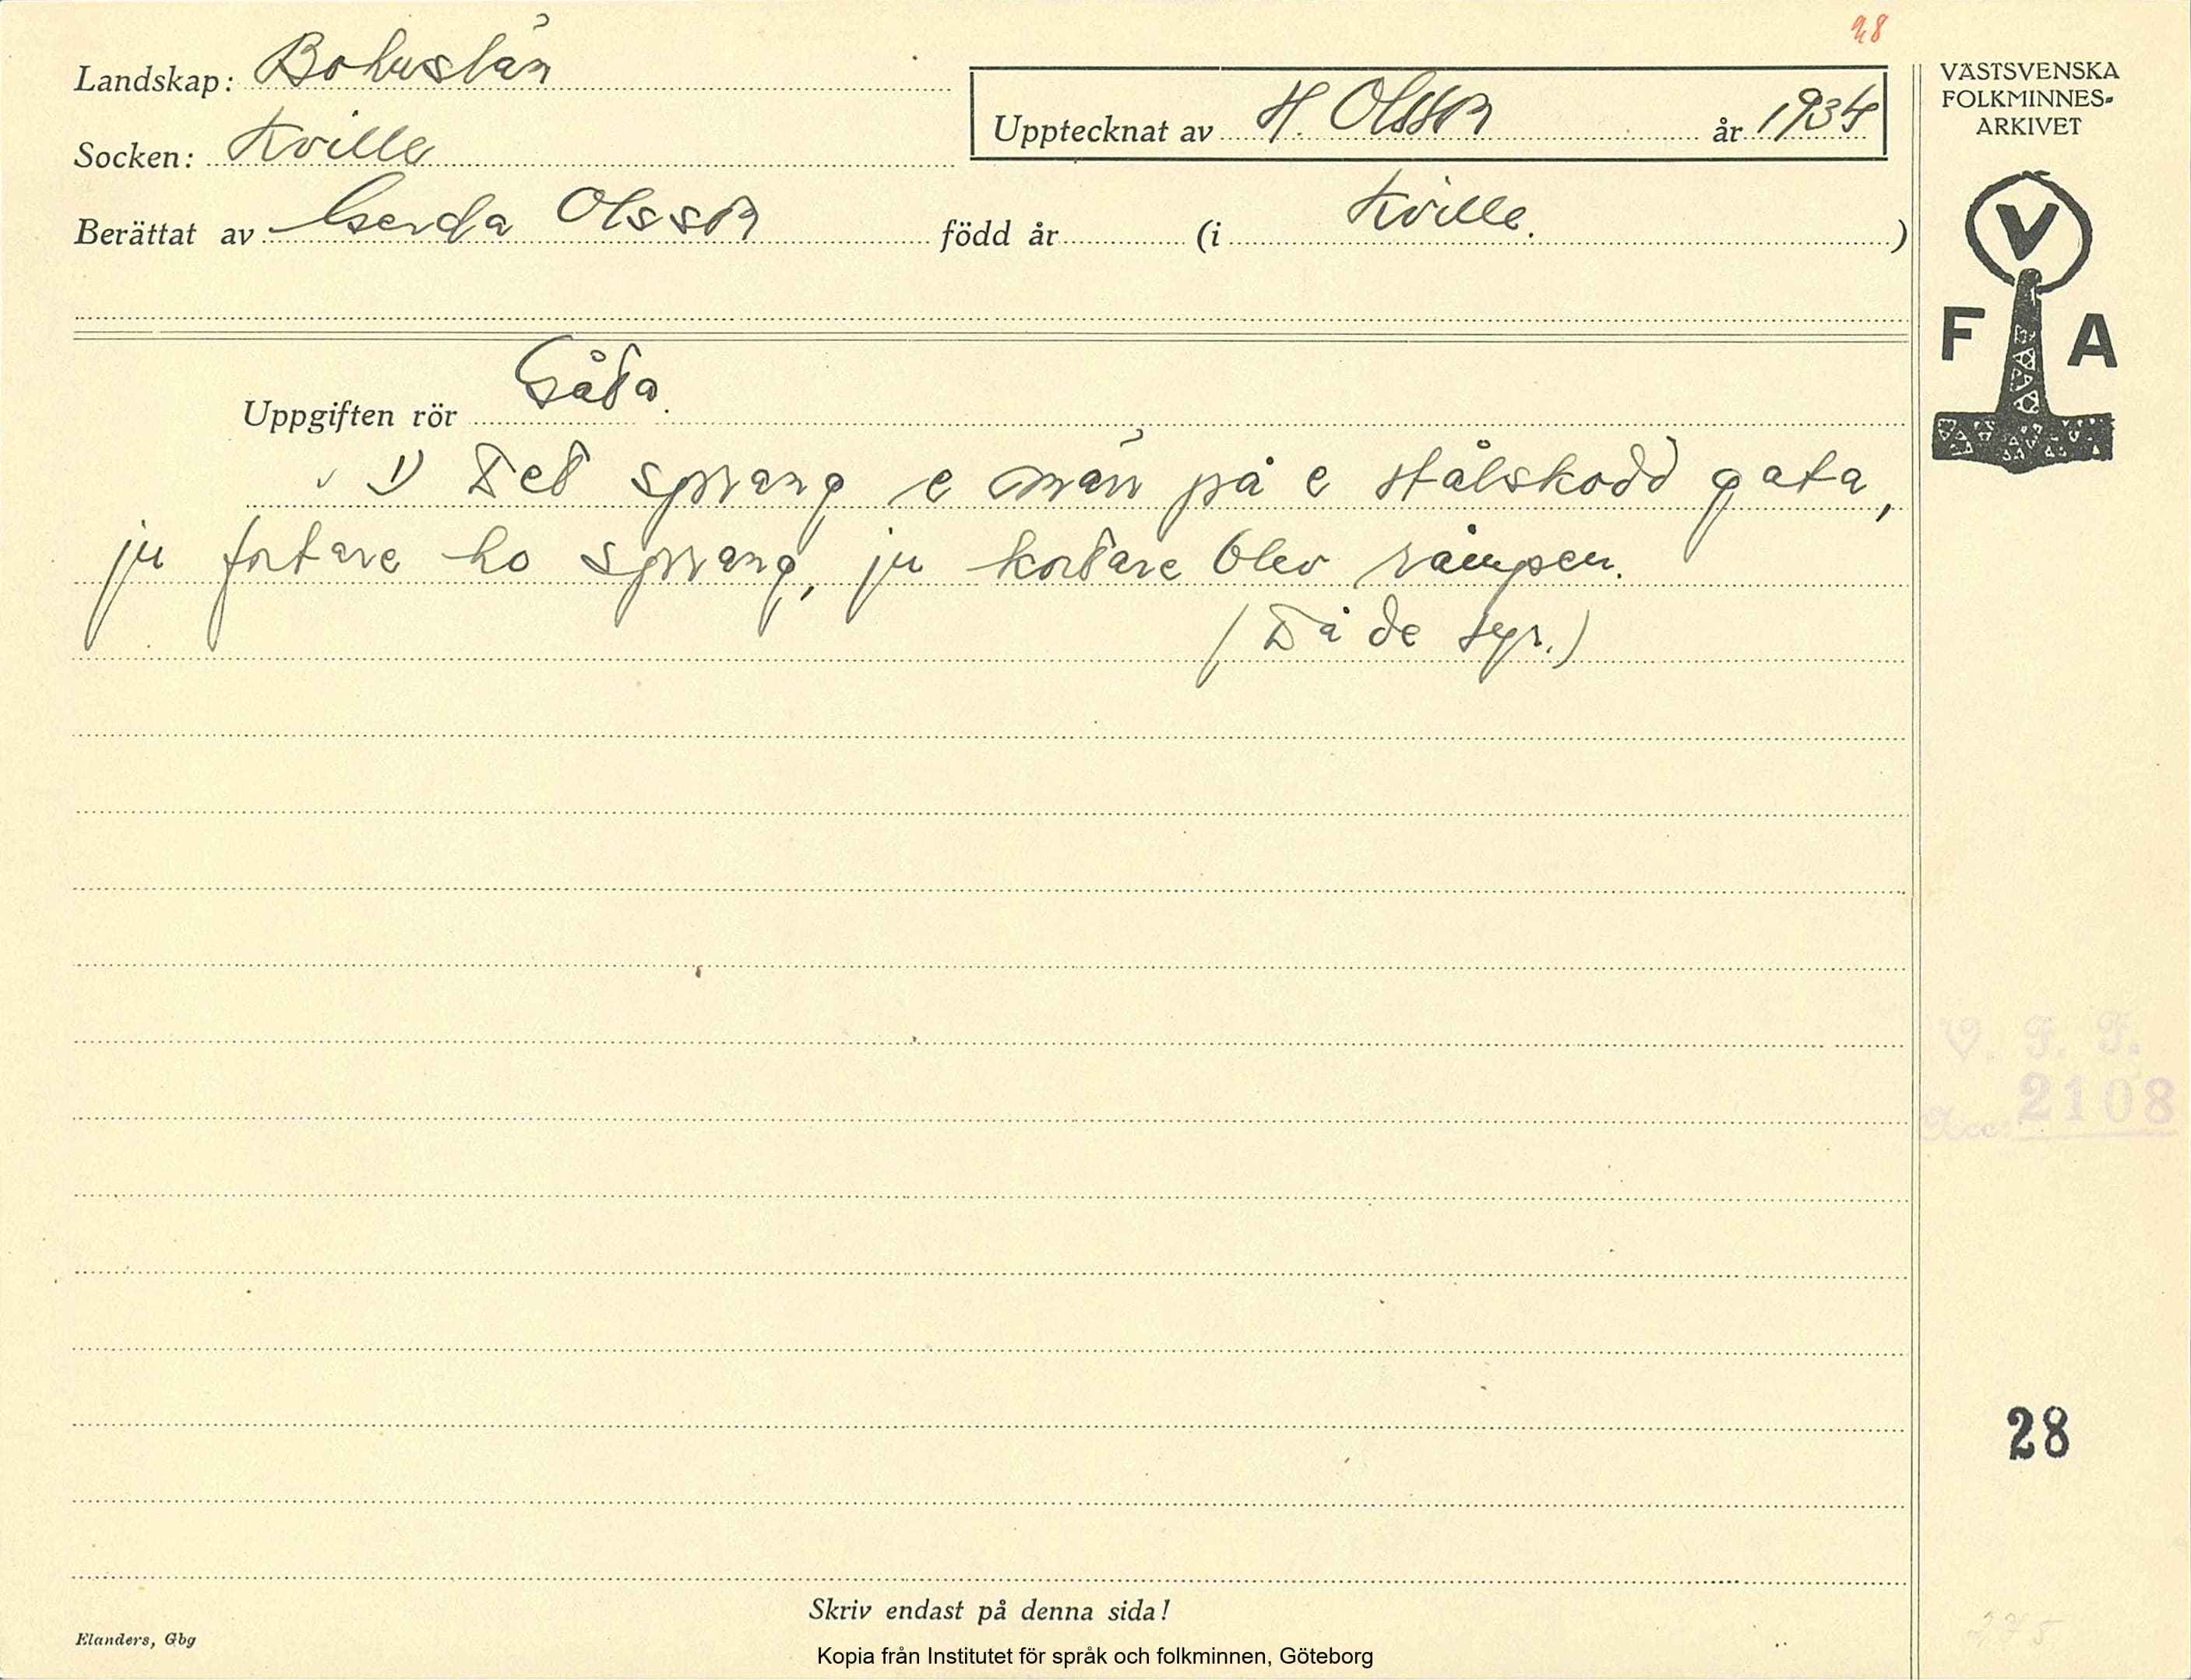 28
Landskap: Bohuslän
Upptecknat av H. Olsson år 1934
Socken: Kville
Berättat av Gerda Olsson född år (i Kville.)
VÄSTSVENSKA
FOLKMINNES-
ARKIVET
V
F A
Uppgiften rör Gåta.
1) Det sprang e män på e stålskodd gata,
ju fortare ho sprang, ju kortare blev rämpen.
(Då de syr.)
V. F. F.
Acc: 2108
28
Skriv endast på denna sida!
Elanders, Gbg
Kopia från Institutet för språk och folkminnen, Göteborg